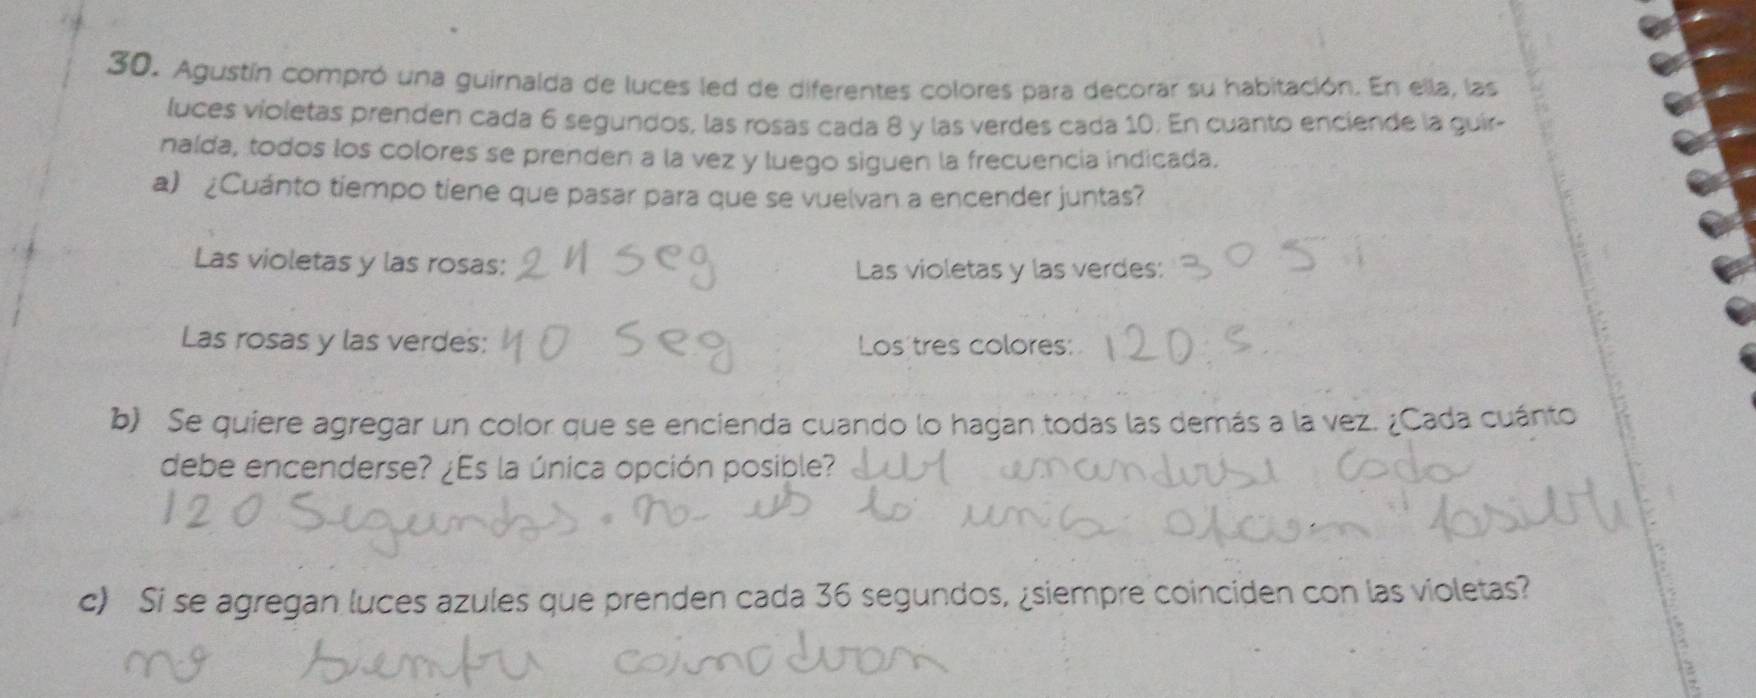 30. Agustín compró una guirnalda de luces led de diferentes colores para decorar su habitación. En ella, las
luces violetas prenden cada 6 segundos, las rosas cada 8 y las verdes cada 10. En cuanto enciende la guir-
nalda, todos los colores se prenden a la vez y luego siguen la frecuencia indicada.
a) ¿Cuánto tiempo tiene que pasar para que se vuelvan a encender juntas?
Las violetas y las rosas: 24 seg Las violetas y las verdes: 30 s
Las rosas y las verdes: 40 seg Los tres colores: 120 s.
b) Se quiere agregar un color que se encienda cuando lo hagan todas las demás a la vez. ¿Cada cuánto
debe encenderse? ¿Es la única opción posible? cada
120 Segundos. no es la unica opcion posible
c) Si se agregan luces azules que prenden cada 36 segundos, ¿siempre coinciden con las violetas?
no siempre